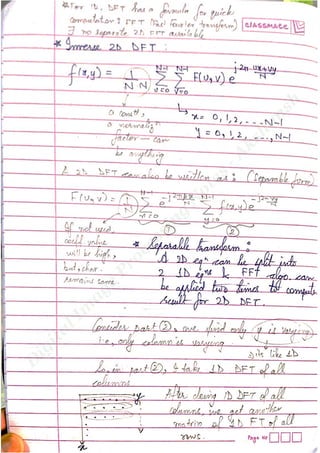 * For 1D, DFT has a formula for quick
computation : FFT (Fast Fourier transform)
∃ no separate 2D FFT available
CLASSMATE
* Inverse 2D DFT :
f(x,y) = 1/N N Σ(u=0 to N-1) Σ(v=0 to N-1) F(u,v) e^(j2π(ux+vy)/N)
a const,
a normalizn
factor - can
be anything
↳ x = 0,1,2,...N-1
y = 0,1,2,...,N-1
2D DFT can also be written as : (Separable form)
F(u,v) = (1/N) Σ(x=0 to N-1) e^(-j2πux/N) Σ(y=0 to N-1) f(x,y) e^(-j2πvy/N)
① ②
If not used,
coeff. value
will be high,
but, char.
remains same.
* Separable transform :
A 2D eqn can be split into
2 1D eqns & FFT algo. can
be applied two times to compute
result for 2D DFT.
Consider part ②, we find only y is varying
i.e, only column is varying.
It is like 1D
So, in part ②, I take 1D DFT of all
columns
y
x
After doing 1D DFT of all
columns, we get another
matrix of 1D FT of all
rows.
Page No